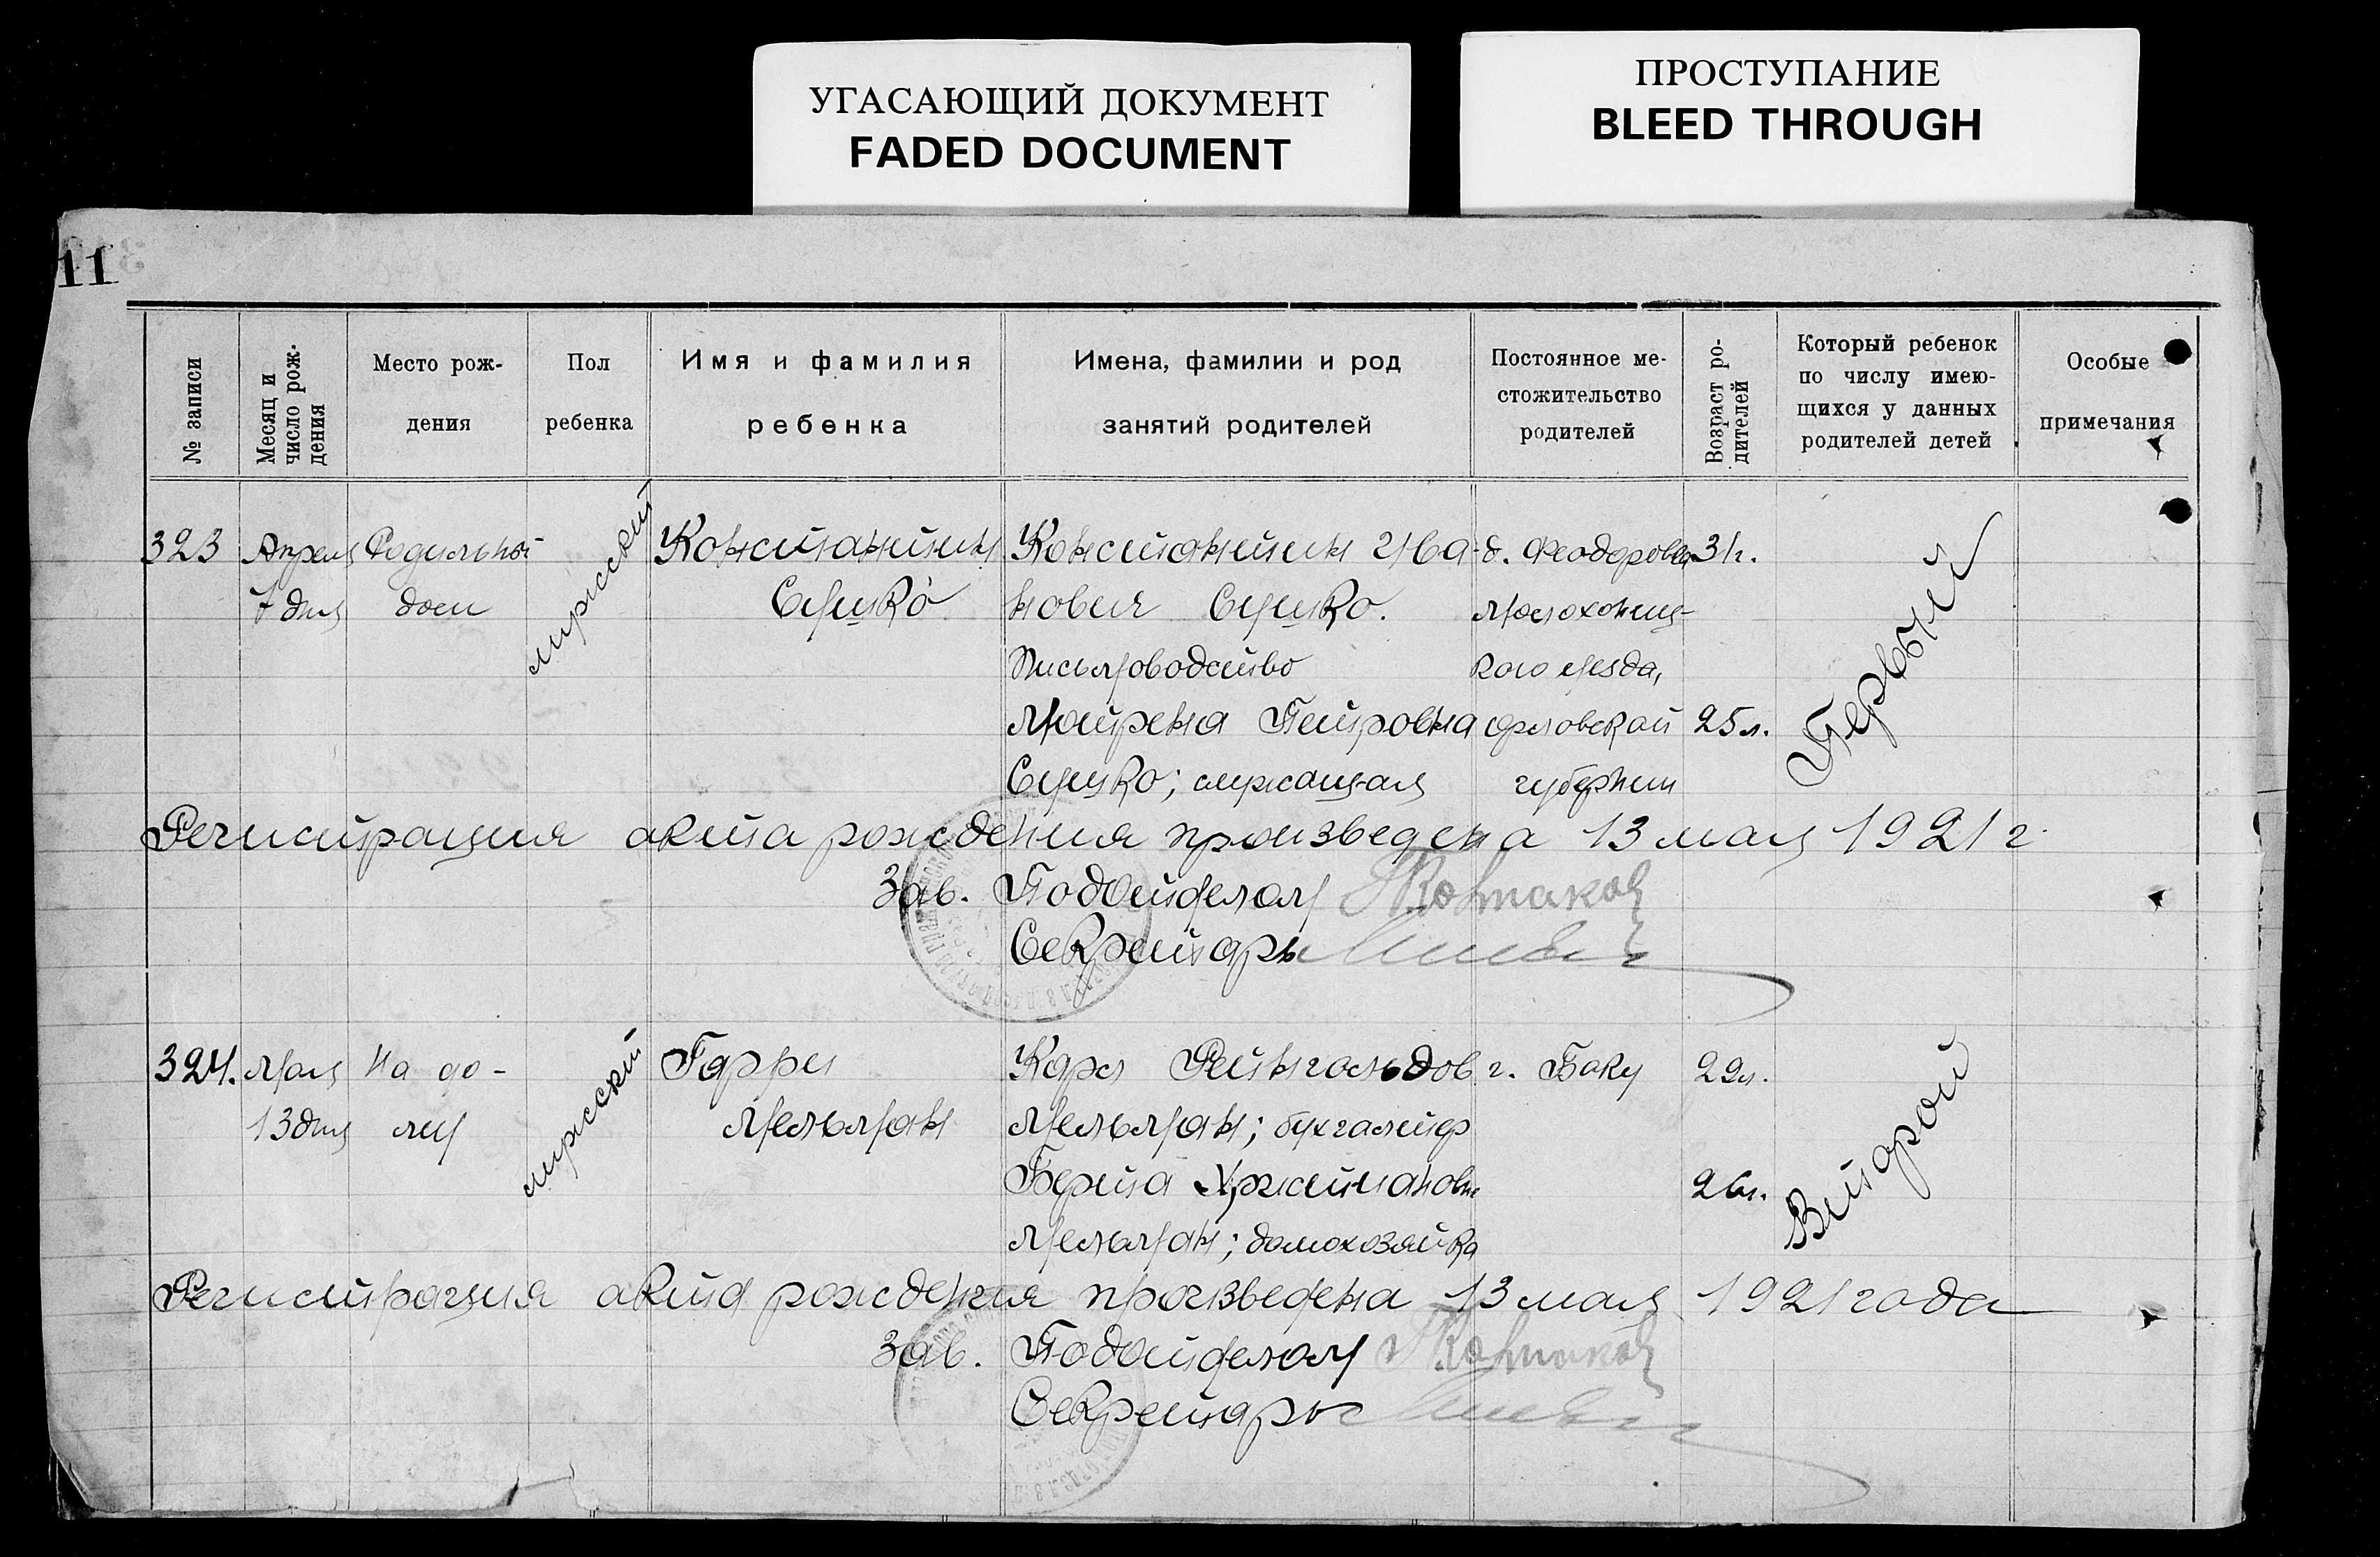 УГАСАЮЩИЙ ДОКУМЕНТ
FADED DOCUMENT
ПРОСТУПАНИЕ
BLEED THROUGH
11
№ записи
Месяц и
число рож-
дения
Место рож-
дения
Пол
ребенка
Имя и фамилия
ребенка
Имена, фамилии и род
занятий родителей
Постоянное ме-
стожительство
родителей
Возраст ро-
дителей
Который ребенок
по числу имею-
щихся у данных
родителей детей
Особые
примечания
323
Апреля
7 дня
Родильный
дом
мужской
Константин
Сушко
Константин Ива-
нович Сушко.
Письмоводство
Матрена Петровна
Сушко; служащая
д. Феодоровка
кого уезда,
орловской
губернии
31г.
25л.
Первый
Регистрация акта рождения произведена 13 мая 1921 г.
Зав. Подотделом
Секретарь
324.
Мая
13 дня
На до-
му
мужской
Гарри
Мельман
Карл Рейнгольдов.
Мельман; бухгалтер
Берта
Мельман; домохозяйка
г. Баку
29л.
26л.
Второй
Регистрация акта рождения произведена 13 мая 1921 года
Зав. Подотделом
Секретарь